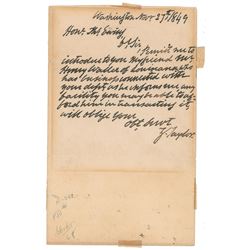 Washington Nov 27th 1849
Hon. Ths Ewing
D Sir
Permit me to
introduce to you my friend Mr
Henry of Louisiana, he
has business connected with
your dept as he informs me any
facility you may be able to af-
ford him in transacting it,
will oblige your
Obt Servt
Z. Taylor